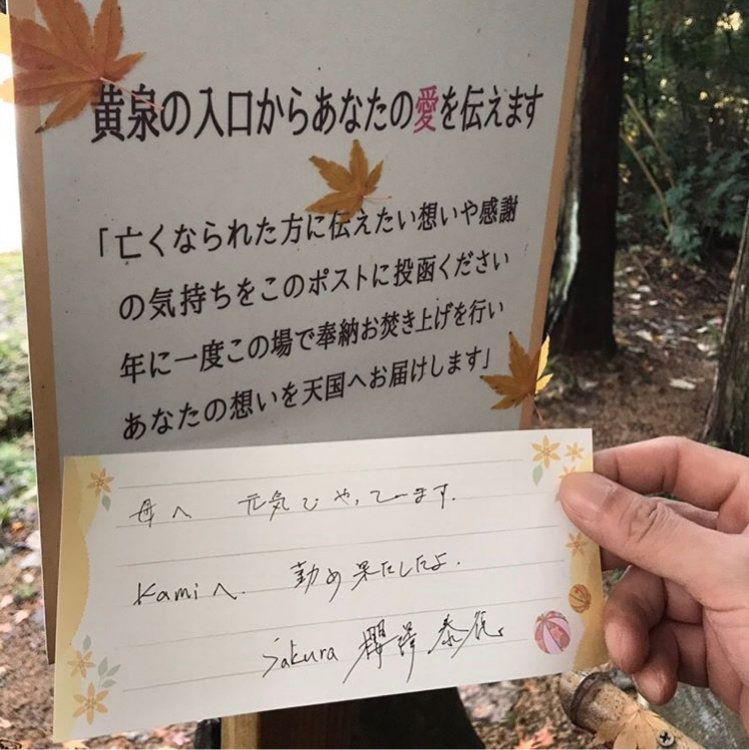 黄泉の入口からあなたの愛を伝えます
「亡くなられた方に伝えたい想いや感謝
の気持ちをこのポストに投函ください
年に一度この場で奉納お焚き上げを行い
あなたの想いを天国へお届けします」
母へ 元気でやってます.
Kamiへ. 勤め果たしたよ.
Sakura 櫻澤 泰